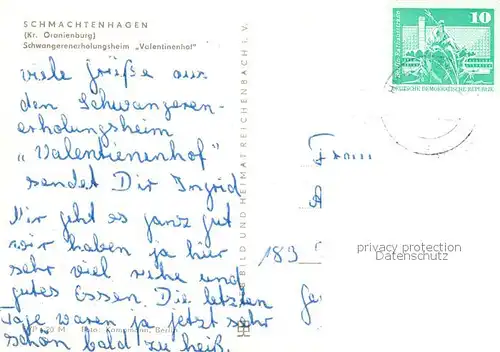 SCHMACHTENHAGEN
(Kr. Oranienburg)
Schwangerenerholungsheim „Valentinenhof"
viele Grüße aus
den Schwangeren-
erholungsheim
„Valentienenhof"
sendet Dir Ingrid
Mir geht es ganz gut
wir haben ja hier
sehr viel ruhe und
gutes Essen. Die letzten
Tage waren ja jetzt sehr
schön bald zu heiß.
BILD UND HEIMAT REICHENBACH I. V.
10
DEUTSCHE DEMOKRATISCHE REPUBLIK
183
privacy protection
Datenschutz
Berlin